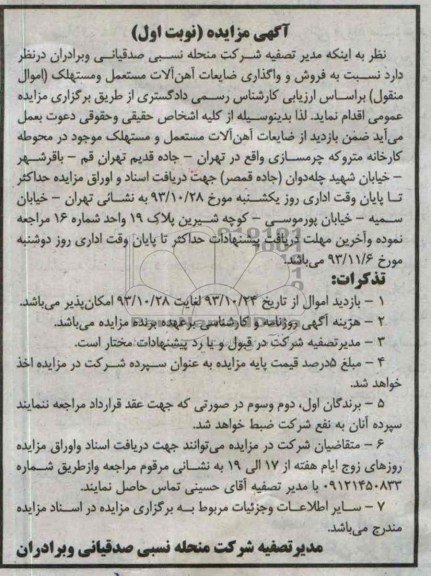 آگهی مزایده (نوبت اول)
نظر به اینکه مدیر تصفیه شرکت منحله نسبی صدقیانی وبرادران درنظر
دارد نسبت به فروش و واگذاری ضایعات آهن‌آلات مستعمل ومستهلک (اموال
منقول) براساس ارزیابی کارشناس رسمی دادگستری از طریق برگزاری مزایده
عمومی اقدام نماید. لذا بدینوسیله از کلیه اشخاص حقیقی وحقوقی دعوت بعمل
می‌آید ضمن بازدید از ضایعات آهن‌آلات مستعمل و مستهلک موجود در محوطه
کارخانه متروکه چرمسازی واقع در تهران – جاده قدیم تهران قم – باقرشهر
– خیابان شهید چله‌دوان (جاده قمصر) جهت دریافت اسناد و اوراق مزایده حداکثر
تا پایان وقت اداری روز یکشنبه مورخ ۹۳/۱۰/۲۸ به نشانی تهران – خیابان
سمیه – خیابان پورموسی – کوچه شیرین پلاک ۱۹ واحد شماره ۱۶ مراجعه
نموده وآخرین مهلت دریافت پیشنهادات حداکثر تا پایان وقت اداری روز دوشنبه
مورخ ۹۳/۱۱/۶ می‌باشد.
تذکرات:
۱ – بازدید اموال از تاریخ ۹۳/۱۰/۲۴ لغایت ۹۳/۱۰/۲۸ امکان‌پذیر می‌باشد.
۲ – هزینه آگهی روزنامه و کارشناسی برعهده برنده مزایده می‌باشد.
۳ – مدیرتصفیه شرکت در قبول و یا رد پیشنهادات مختار است.
۴ – مبلغ ۵درصد قیمت پایه مزایده به عنوان سپرده شرکت در مزایده اخذ
خواهد شد.
۵ – برندگان اول، دوم وسوم در صورتی که جهت عقد قرارداد مراجعه ننمایند
سپرده آنان به نفع شرکت ضبط خواهد شد.
۶ – متقاضیان شرکت در مزایده می‌توانند جهت دریافت اسناد واوراق مزایده
روزهای زوج ایام هفته از ۱۷ الی ۱۹ به نشانی مرقوم مراجعه وازطریق شماره
۰۹۱۲۱۴۵۰۸۳۳ با مدیر تصفیه آقای حسینی تماس حاصل نمایند.
۷ – سایر اطلاعات وجزئیات مربوط به برگزاری مزایده در اسناد مزایده
مندرج می‌باشد.
مدیرتصفیه شرکت منحله نسبی صدقیانی وبرادران